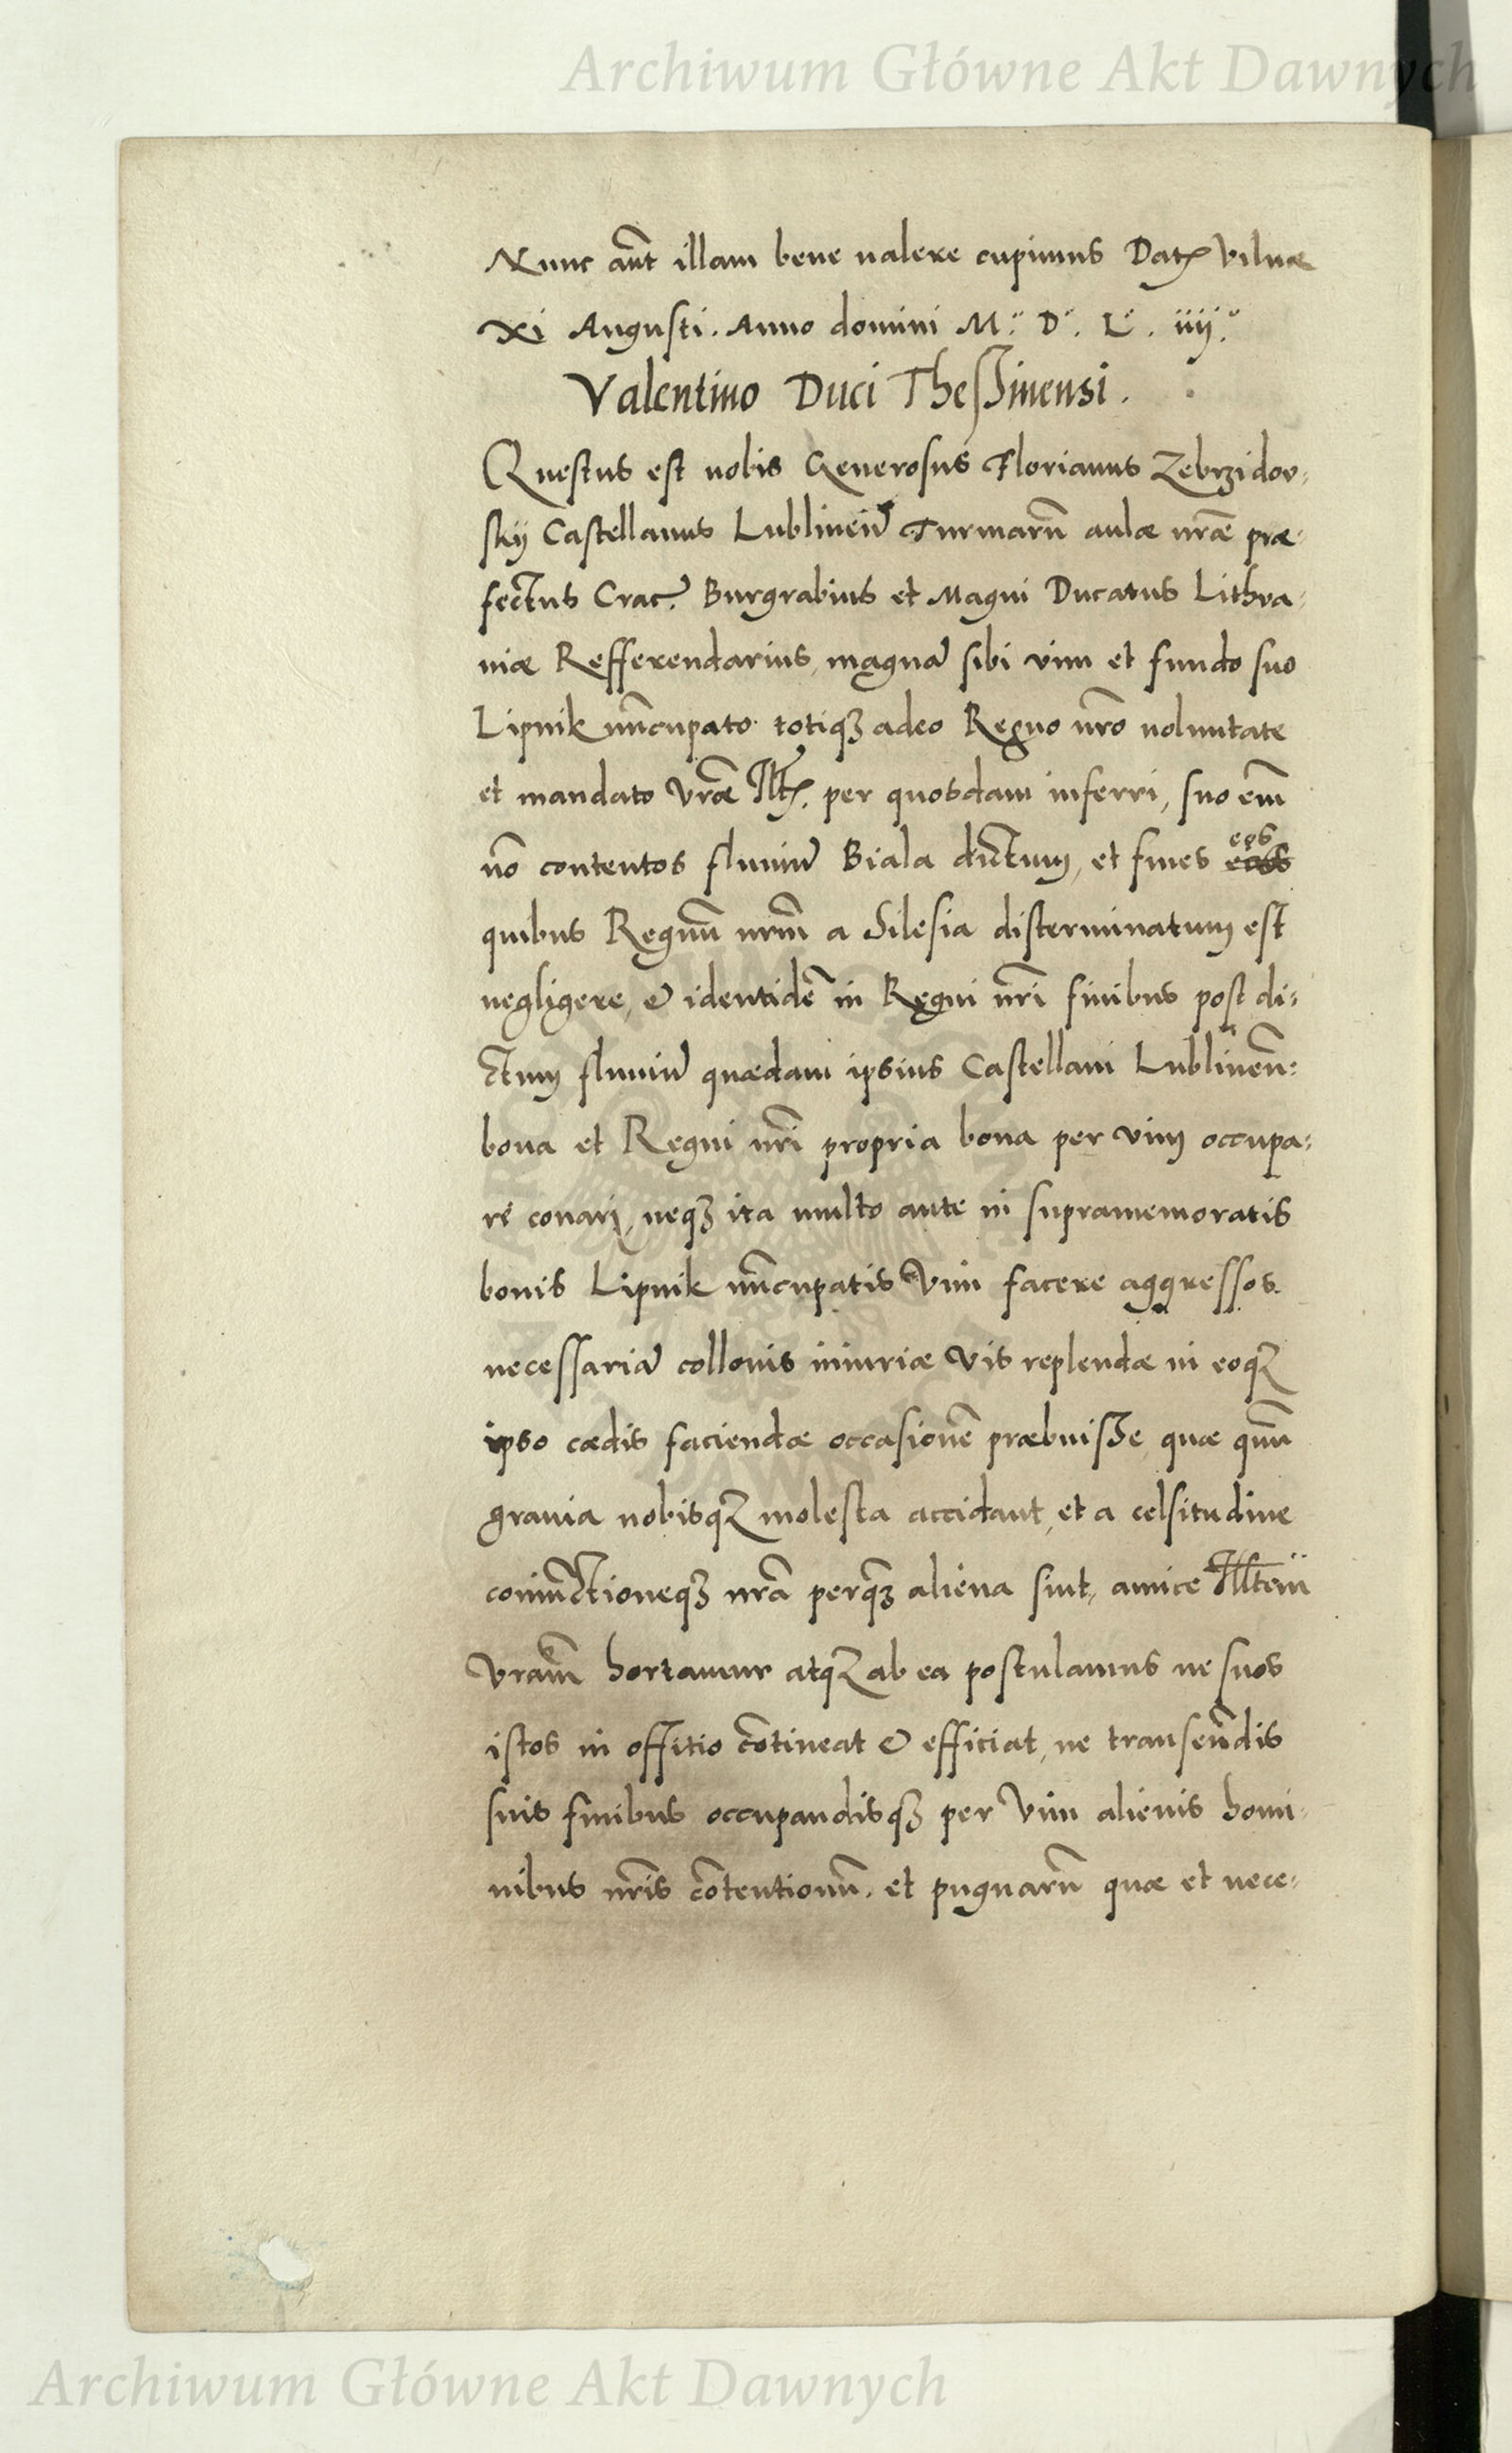 Archiwum Główne Akt Dawnych
Nunc aūt illam bene valere cupimus Datꝭ Vilnæ
Xi Augusti. Anno domini M.º D.º L.º iiij.º
Valentino Duci Thessinensi.
Questus est nobis Generosus Florianus Zebrzidov-
skij Castellanus Lublineñ Turmarū aulæ nr̄æ præ-
fectus Crac. Burgrabius et Magni Ducatus Lithva-
niæ Refferendarius, magnā sibi vim et fundo suo
Lipnik nūcupato totiqꝫ adeo Regno nr̄o voluntate
et mandato Vr̄æ Illtꝭ. per quosdam inferri, suo em̄
nō contentos fluviū Biala dictum, et fines eos
quibus Regnū nrm̄ a Silesia disterminatum est
negligere, & identidē in Regni nr̄i finibus post di-
ctum fluviū quædam ipsius Castellani Lublinen̄-
bona et Regni nr̄i propria bona per vim occupa-
re conari, neqꝫ ita multo ante in supramemoratis
bonis Lipnik nūcupatis Vim facere aggressos.
necessariā collonis iniuriæ Vis replendæ in eoqꝫ
ipso cædis faciendæ occasionē præbuisse, quæ quū
gravia nobisqꝫ molesta accidant, et a celsitudine
coniūctioneqꝫ nr̄a perqꝫ aliena sint, amice Illtem
Vram̄ hortamur atqꝫ ab ea postulamus ne suos
istos in offitio cōtineat & efficiat, ne transēndis
suis finibus occupandisqꝫ per Vim alienis homi-
nibus nr̄is cōtentionū. et pugnarū quæ et nece-
Archiwum Główne Akt Dawnych